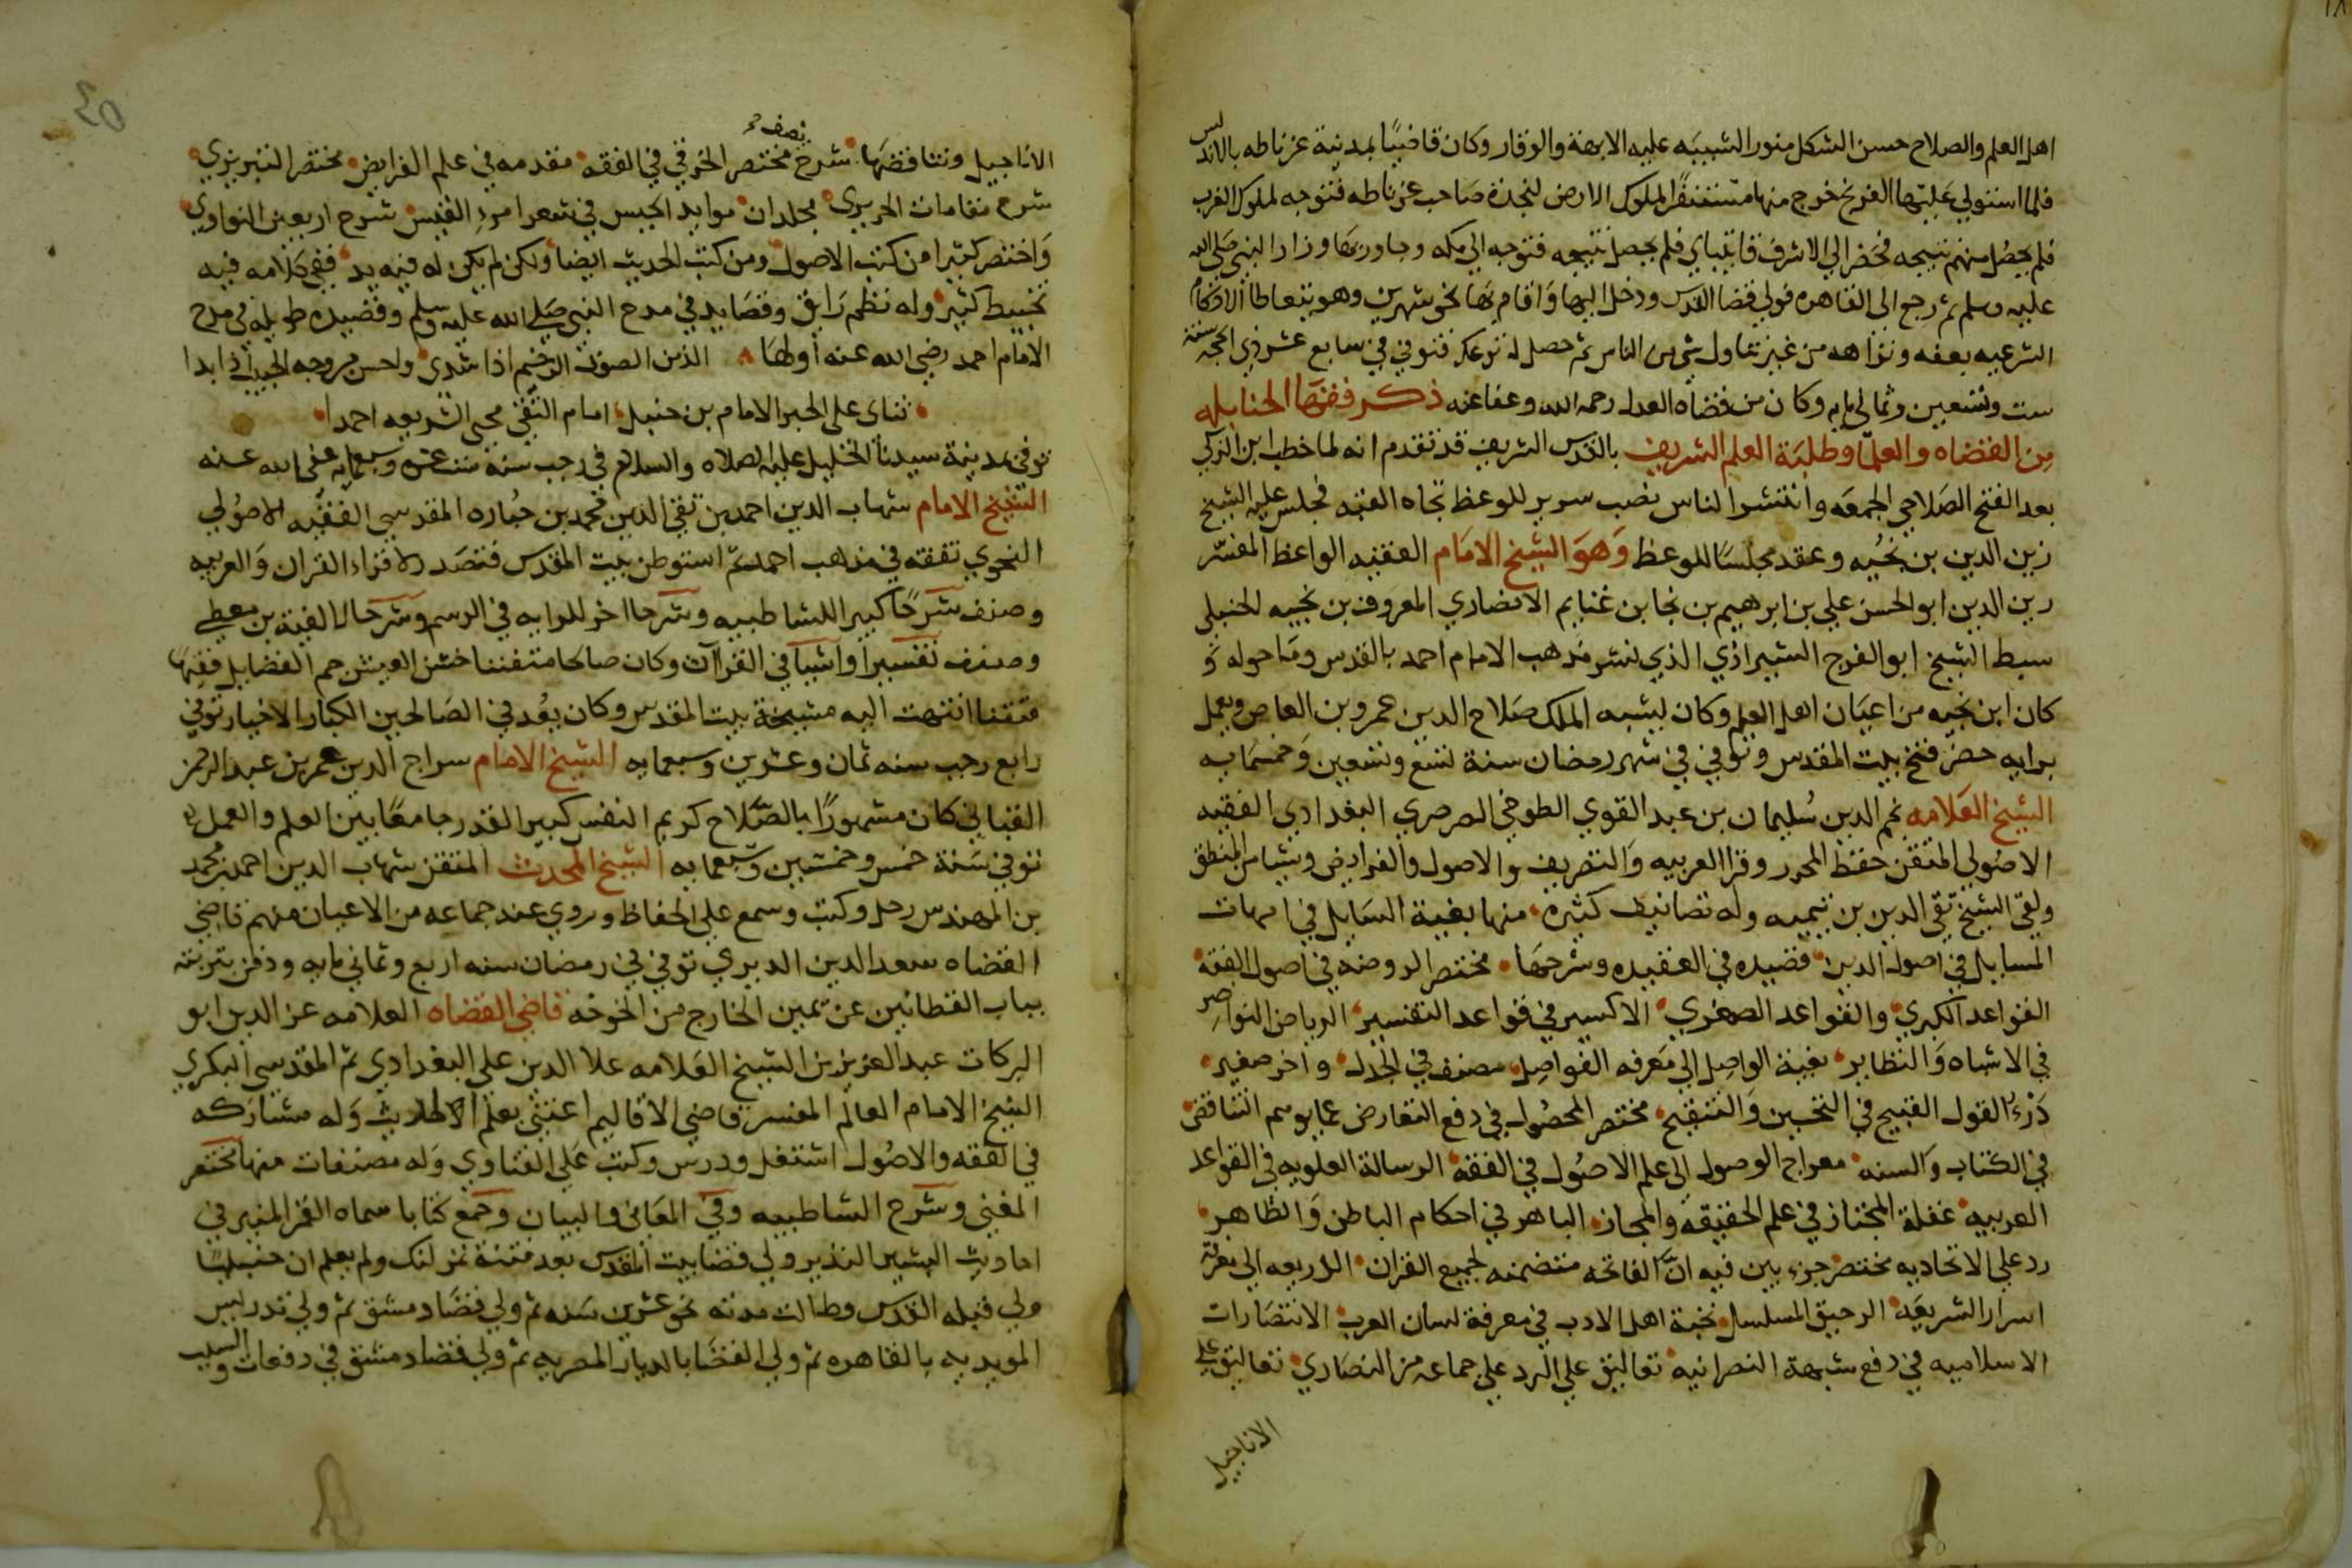 اهل العلم والصلاح حسن الشكل منور الشيبه عليه الابهة والوقار وكان قاضيًا بمدينة غرناطه بالاندلس
فلما استولي عليها الفرنج خرج منها مستنفرًا لملوك الارض لنجدة صاحب غرناطه فتوجه لملوك الغرب
فلم يحصل منهم نتيجه فحضر الي الاشرف قايتباي فلم يحصل نتيجه فتوجه الي مكه وجاور بها وزار النبي صلي الله
عليه وسلم ثم رجع الى القاهره فولي قضا القدس ودخل اليها واقام بها نحو شهرين وهو يتعاطا الاحكام
الشرعيه بعفه ونزاهه من غير تناول شي من الناس ثم حصل له توعك فتوفي في سابع عشر ذي الحجة سنة
ست وتسعين وثمانمايه وكان من قضاه العدل رحمه الله وعفا عنه ذكر فقها الحنابله
من القضاه والعلما وطلبة العلم الشريف بالقدس الشريف قد تقدم انه لما خطب ابن الزكي
بعد الفتح الصلاحي الجمعه وانتشر الناس نصب سرير للوعظ تجاه القبه فجلس عليه الشيخ
زين الدين بن نجيه وعقد مجلسًا للوعظ وهو الشيخ الامام الفقيه الواعظ المفسر
زين الدين ابو الحسن علي بن ابرهيم بن نجا بن غنايم الانصاري المعروف بن نجيه الحنبلي
سبط الشيخ ابو الفرج الشيرازي الذي نشر مذهب الامام احمد بالقدس وما حوله و
كان ابن نجيه من اعيان اهل العلم وكان يشبه الملك صلاح الدين عمرو بن العاص ويعمل
برايه حضر فتح بيت المقدس وتوفي في شهر رمضان سنة تسع وتسعين وخمسمايه
الشيخ العلامه نجم الدين سليمان بن عبد القوي الطوخي الصرصري البغدادي الفقيه
الاصولي المتقن حفظ المحرر وقرا العربيه والتصريف والاصول والفرايض وشيا من المنطق
ولقي الشيخ تقي الدين بن تيميه وله تصانيف كثيره منها بغية السايل في امهات
المسايل في اصول الدين قصيده في العقيده وشرحها مختصر الروضه في اصول الفقه
القواعد الكبري والقواعد الصغري الاكسير في قواعد التفسير الرياض النواضر
في الاشباه والنظاير بغية الواصل الي معرفه الفواصل مصنف في الجدل واخر صغير
درء القول القبيح في التحسين والتقبيح مختصر المحصول في دفع التعارض عما يوهم التناقض
في الكتاب والسنه معراج الوصول الي علم الاصول في الفقه الرسالة العلويه في القواعد
العربيه غفلة المجتاز في علم الحقيقه والمجاز الباهر في احكام الباطن والظاهر
رد علي الاتحاديه مختصر جزء بين فيه ان الفاتحه متضمنه لجميع القران الذريعه الي معرفة
اسرار الشريعه الرحيق المسلسل نخبة اهل الادب في معرفة لسان العرب الانتصارات
الاسلاميه في دفع شبهة النصرانيه تعاليق علي الرد علي جماعه من النصاري تعاليق علي
الاناجيل
الاناجيل وتناقضها شرح نصف مختصر الخرقي في الفقه مقدمه في علم الفرايض مختصر التبريزي
شرح مقامات الحريري مجلدان موايد الحيس في شعر امرء القيس شرح اربعين النواوي
واختصر كثيرا من كتب الاصول ومن كتب الحديث ايضا ولكن لم يكن له فيه يد ففي كلامه فيه
تخبيط كثير وله نظم رايق وقصايد في مدح النبي صلي الله عليه وسلم وقصيده طويله في مدح
الامام احمد رضي الله عنه اولها الذ من الصوت الرخيم اذا شدي واحسن من وجه الحبيب اذا بدا
ثناى على الحبر الامام بن حنبل امام التقي محيي الشريعه احمدا
توفي بمدينة سيدنا الخليل عليه الصلاه والسلام في رجب سنة ست عشره وسبعمايه عفي الله عنه
الشيخ الامام شهاب الدين احمد بن تقي الدين محمد بن جباره المقدسي الفقيه الاصولي
النحوي تفقه في مذهب احمد ثم استوطن بيت المقدس فتصدر لاقراء القران والعربيه
وصنف شرحًا كبيرا للشاطبيه وشرحا اخر للرايه في الرسم وشرحا لالفية بن معطي
وصنف تفسيرا واشيا في القراآت وكان صالحا متفننا خشن العيش جم الفضايل فقيهًا
متقنا انتهت اليه مشيخة بيت المقدس وكان يعد في الصالحين الكبار الاخيار توفي
رابع رجب سنه ثمان وعشرين وسبعمايه الشيخ الامام سراج الدين عمر بن عبد الرحمن
القبابي كان مشهورًا بالصلاح كريم النفس كبير القدر جامعًا بين العلم والعمل
توفي سنة خمس وخمسين وسبعمايه الشيخ المحدث المتقن شهاب الدين احمد بن محمد
بن المهندس رحل وكتب وسمع علي الحفاظ وروي عنه جماعه من الاعيان منهم قاضي
القضاه سعد الدين الديري توفي في رمضان سنه اربع وثماني مايه ودفن بتربته
بباب القطانين عن يمين الخارج من الخوخه قاضي القضاه العلامه عز الدين ابو
البركات عبد العزيز بن الشيخ العلامه علا الدين علي البغدادي ثم المقدسي البكري
الشيخ الامام العالم المفسر قاضي الاقاليم اعتني بعلم الحديث وله مشاركه
في الفقه والاصول اشتغل ودرس وكتب علي الفتاوي وله مصنفات منها مختصر
المغني وشرح الشاطبيه وفي المعاني والبيان وجمع كتابا سماه القمر المنير في
احاديث البشير النذير ولي قضا بيت المقدس بعد فتنة تمرلنك ولم يعلم ان حنبليًا
ولي قبله القدس وطالت مدته نحو عشرين سنه ثم ولي قضا دمشق ثم ولي تدريس
المويديه بالقاهره ثم ولي القضا بالديار المصريه ثم ولي قضا دمشق في دفعات